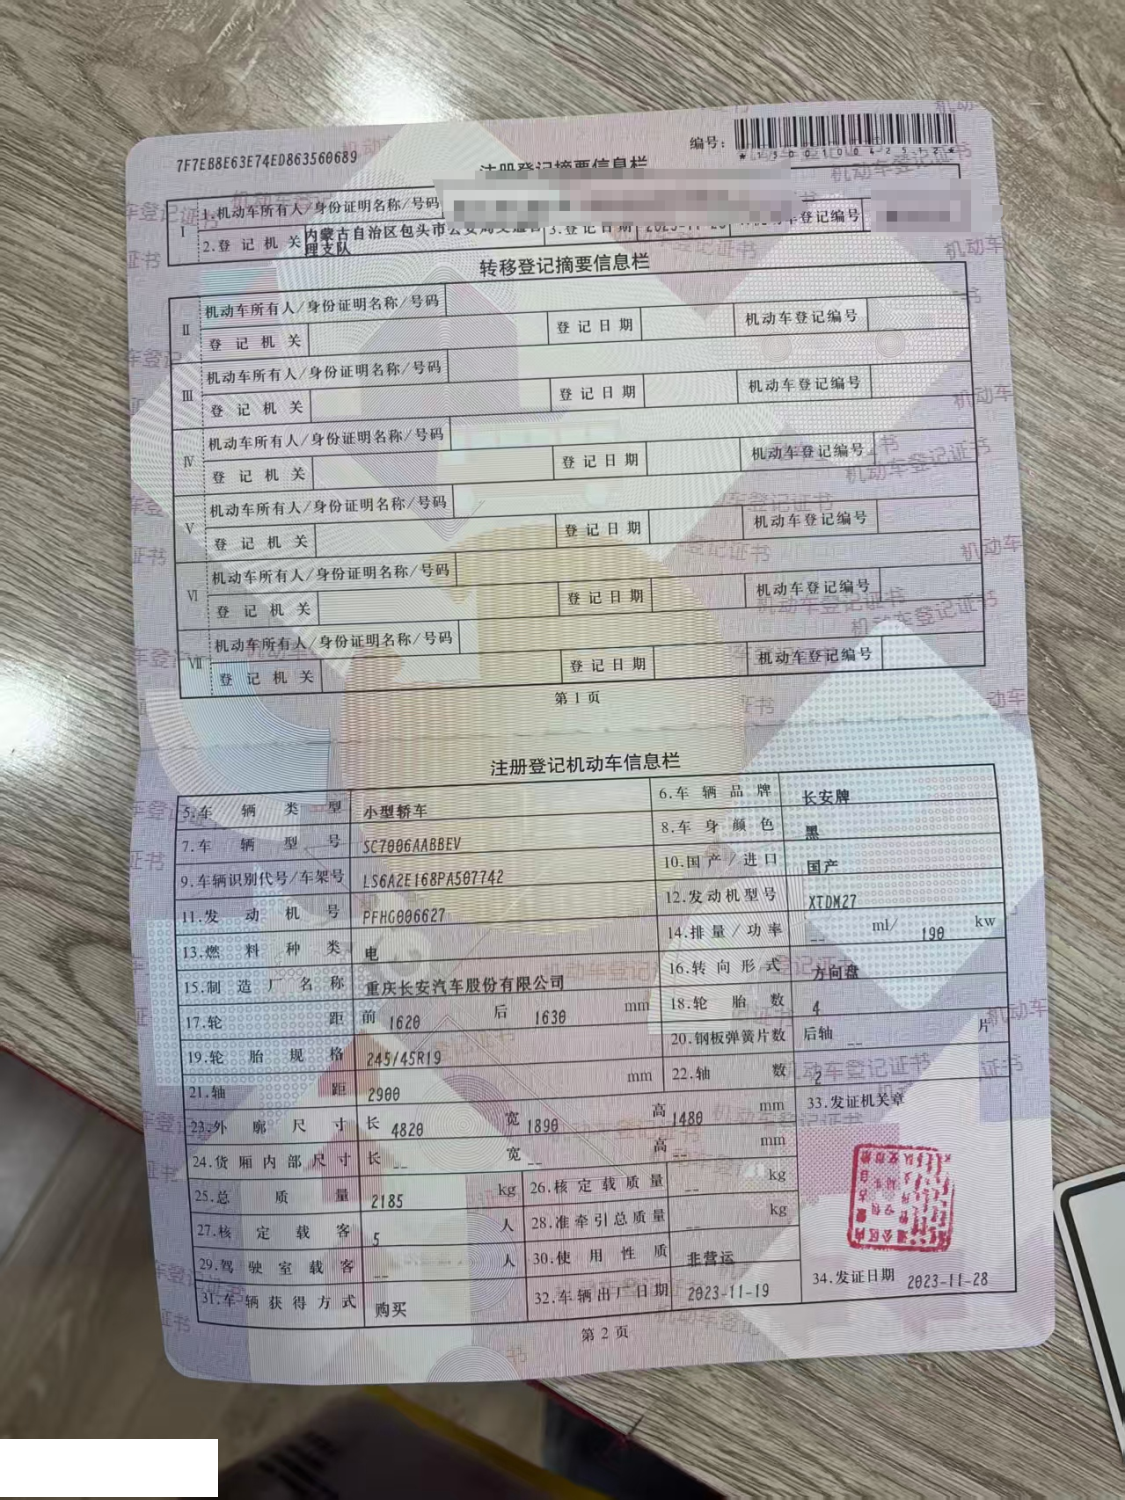 7F7EB8E63E74ED863560689
编号：
注册登记摘要信息栏
I
1.机动车所有人/身份证明名称/号码
2.登记机关 内蒙古自治区包头市公安局交通管理支队 3.登记日期 2023-11-28 机动车登记编号
转移登记摘要信息栏
II 机动车所有人/身份证明名称/号码
登记机关 登记日期 机动车登记编号
III 机动车所有人/身份证明名称/号码
登记机关 登记日期 机动车登记编号
IV 机动车所有人/身份证明名称/号码
登记机关 登记日期 机动车登记编号
V 机动车所有人/身份证明名称/号码
登记机关 登记日期 机动车登记编号
VI 机动车所有人/身份证明名称/号码
登记机关 登记日期 机动车登记编号
VII 机动车所有人/身份证明名称/号码
登记机关 登记日期 机动车登记编号
第1页
注册登记机动车信息栏
5.车辆类型 小型轿车 6.车辆品牌 长安牌
7.车辆型号 SC7006AABBEV 8.车身颜色 黑
9.车辆识别代号/车架号 LS6A2E168PA507742 10.国产/进口 国产
11.发动机号 PFHG006627 12.发动机型号 XTDM27
13.燃料种类 电 14.排量/功率 -- ml/ 190 kw
15.制造厂名称 重庆长安汽车股份有限公司 16.转向形式 方向盘
17.轮距 前 1620 后 1630 mm 18.轮胎数 4
19.轮胎规格 245/45R19 20.钢板弹簧片数 后轴 -- 片
21.轴距 2900 mm 22.轴数 2
23.外廓尺寸 长 4820 宽 1890 高 1480 mm 33.发证机关章
24.货厢内部尺寸 长 -- 宽 -- 高 -- mm
25.总质量 2185 kg 26.核定载质量 -- kg
27.核定载客 5 人 28.准牵引总质量 -- kg
29.驾驶室载客 -- 人 30.使用性质 非营运
31.车辆获得方式 购买 32.车辆出厂日期 2023-11-19 34.发证日期 2023-11-28
第2页